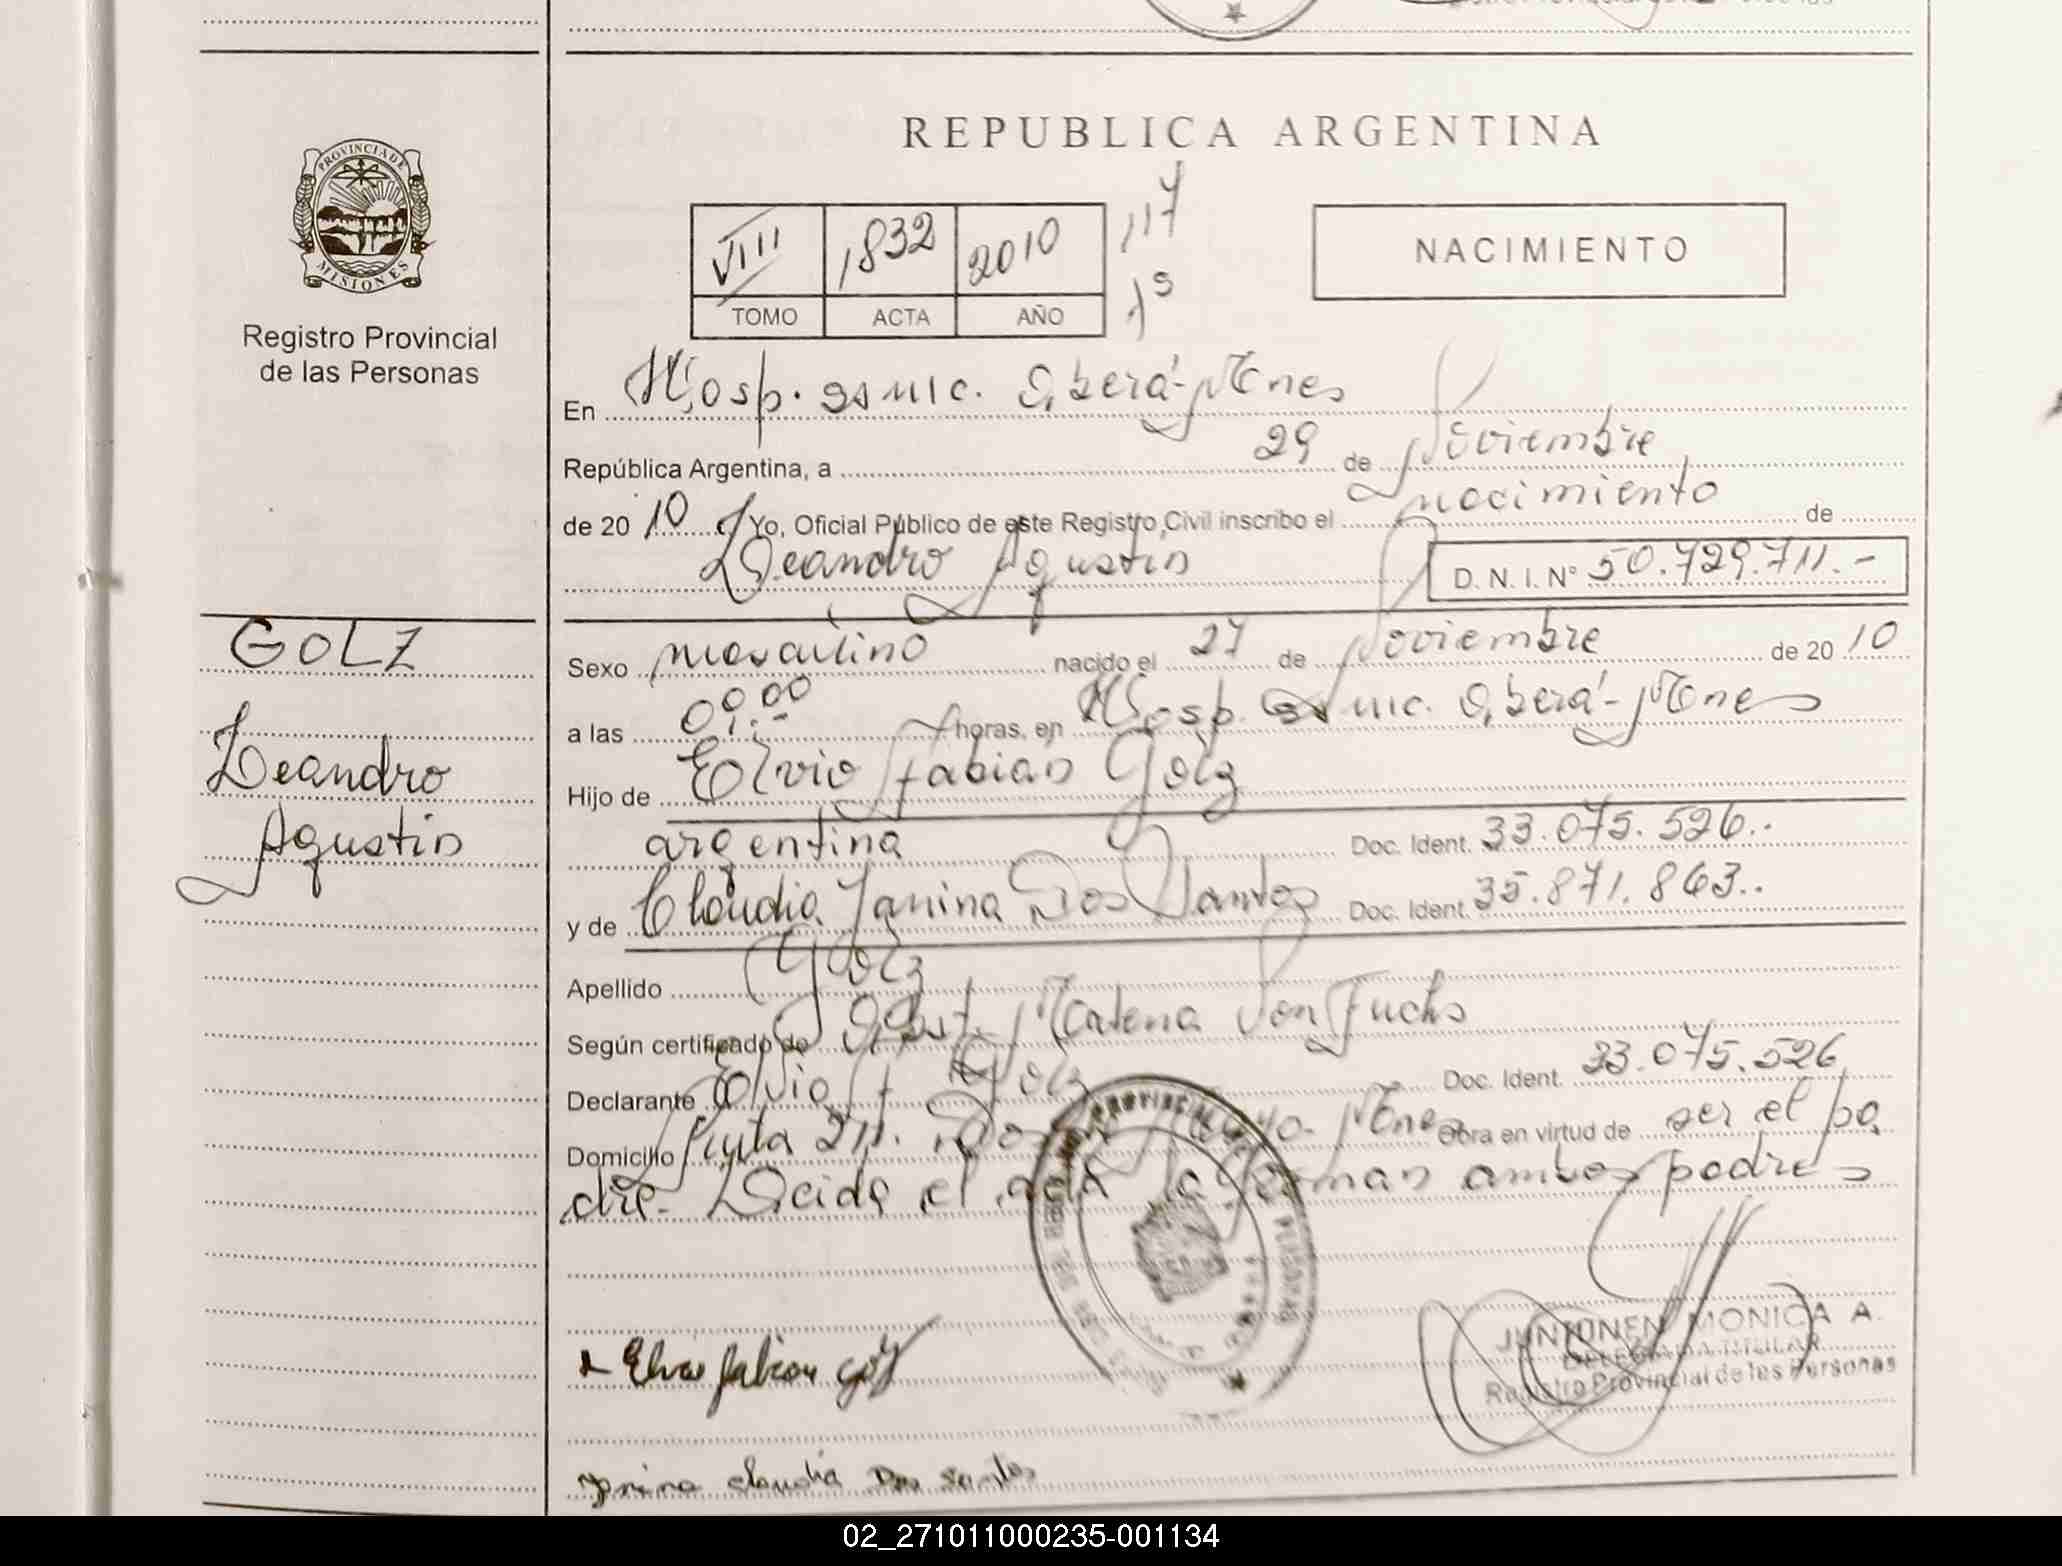 REPUBLICA ARGENTINA
PROVINCIA DE
MISIONES
Registro Provincial
de las Personas
VIIII 1832 2010 117
TOMO ACTA AÑO
NACIMIENTO
En Hosp. Oberá-Mnes
República Argentina, a 29 de Noviembre
de 20 10 Yo, Oficial Público de este Registro Civil inscribo el nacimiento de
Leandro Agustin D.N.I. Nº 50.729.711.-
GOLZ
Leandro
Agustin
Sexo masculino nacido el 27 de Noviembre de 20 10
a las horas, en Hosp. Oberá-Mnes
Hijo de Elvio Fabian Golz
argentina Doc. Ident. 33.075.526..
y de Claudia Janina Dos Santos Doc. Ident. 35.871.863..
Apellido Golz
Según certificado de Obst. Malena Von Fuchs
Declarante Elvio F Golz Doc. Ident. 33.075.526
Domicilio Ruta Dos Mnes Obra en virtud de ser el pa
dre- Leida el acta la firman ambos padres
Elvio fabian golz
JUNTUNEN MONICA A.
DELEGADA TITULAR
Registro Provincial de las Personas
Janina claudia Dos Santos
02_271011000235-001134